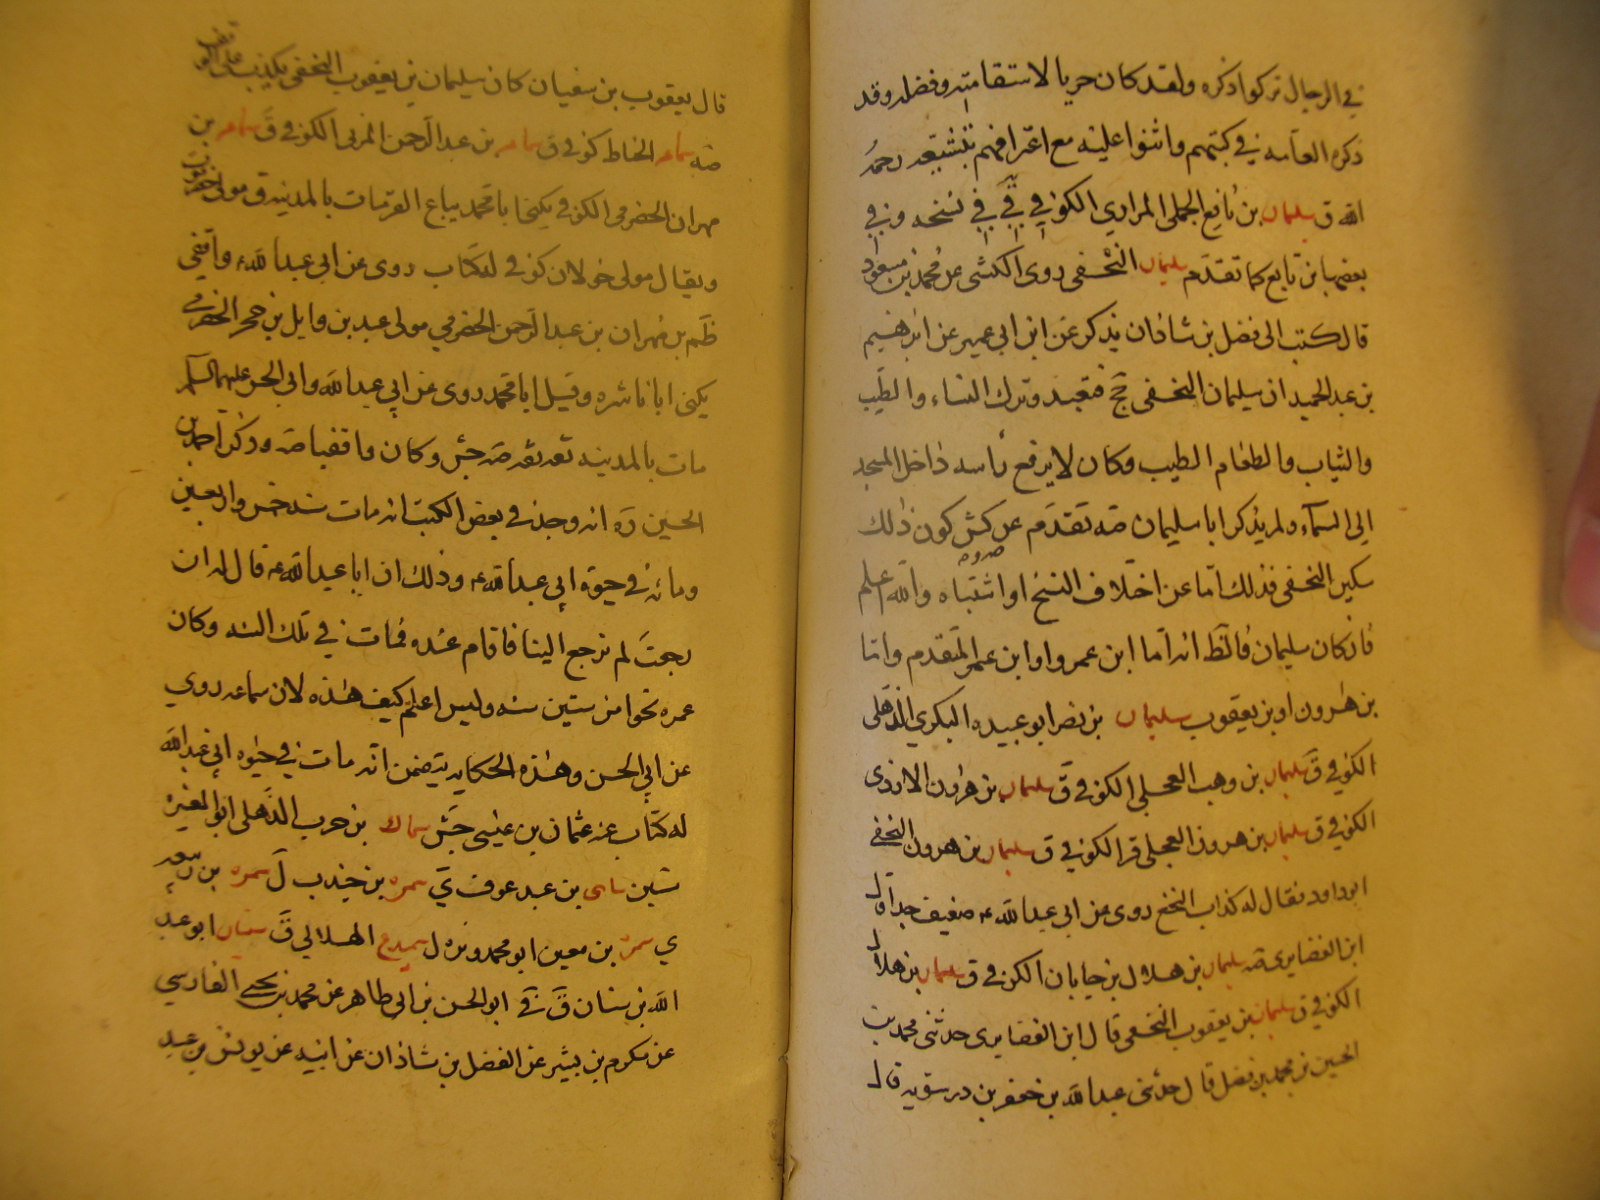 في الرجال تركوا ذكره ولقد كان حريا لاستقامته وفضله وقد
ذكره العامه في كتبهم واثنوا عليه مع اعترافهم بتشيعه رحمه
الله ق سليمان بن نافع الجملي المرادي الكوفي ق في نسخه وفي
بعضها بن تابع كما تقدم سليمان النخعي روى الكشي عن محمد بن مسعود
قال كتب الى فضل بن شاذان يذكر عن ابن ابي عمير عن ابرهيم
بن عبد الحميد ان سليمان النخعي حج فتعبد وترك النساء والطيب
والثياب والطعام الطيب وكان لا يرفع راسه داخل المسجد
الى السماء ولم يذكر ابا سليمان صه تقدم عن كش كون ذلك
سكين النخعي فذلك اما عن اختلاف النسخ او اشتباه والله اعلم
فان كان سليمان فالظ انه اما ابن عمرو او ابن عمر المتقدم واما
بن هرون او بن يعقوب سليمان بن نصر ابو عبيده البكري الذهلي
الكوفي ق سليمان بن وهب العجلي الكوفي ق سليمان بن هرون الازدي
الكوفي ق سليمان بن هرون العجلي الكوفي ق سليمان بن هرون النخعي
ابو داود فقال له كذاب النخع روى عن ابي عبد الله ع ضعيف جدا قال
ابن الغضايري صه سليمان بن هلال بن جابان الكوفي ق سليمان بن هلال
الكوفي ق سليمان بن يعقوب النخعي قال ابن الغضايري حدثني محمد بن
الحسين بن محمد بن فضل قال حدثني عبد الله بن جعفر بن درستويه قال
قال يعقوب بن سفيان كان سليمان بن يعقوب النخعي يكذب على الوقف
صه سماعه الخناط كوفي ق سماعه بن عبد الرحمن المزني الكوفي ق سماعه بن
مهران الحضرمي الكوفي يكنى ابا محمد بياع القز مات بالمدينه ق مولى حضرموت
ويقال مولى خولان كوفي له كتاب روى عن ابي عبد الله ع واقفي
ظم بن مهران بن عبد الرحمن الحضرمي مولى عبد بن وايل بن حجر الحضرمي
يكنى ابا ناشره وقيل ابا محمد روى عن ابي عبد الله وابي الحسن عليهما السلم
مات بالمدينه ثقه ثقه صه جش وكان واقفيا صه وذكر احمد بن
الحسين ره انه وجد في بعض الكتب انه مات سنه خمس واربعين
ومائه في حيوه ابي عبد الله ع وذلك ان ابا عبد الله ع قال له ان
رجعت لم ترجع الينا فاقام عنده فمات في تلك السنه وكان
عمره نحوا من ستين سنه وليس اعلم كيف هذه لان سماعه روى
عن ابي الحسن وهذه الحكايه تتضمن انه مات في حيوه ابي عبد الله
له كتاب عنه عثمان بن عيسى جش سماك بن حرب الذهلي ابو المغيره
ين بن عبد عوف ي سمره بن جندب ل سمره بن ربيعه
ي سمره بن معين ابو محمدوره ل سميدع الهلالي ق سنان ابو عبد
الله بن سنان ق في ابو الحسن بن ابي طاهر عن محمد بن يحيى الفارسي
عن مكرم بن بشر عن الفضل بن شاذان عن ابيه عن يونس بن عبد